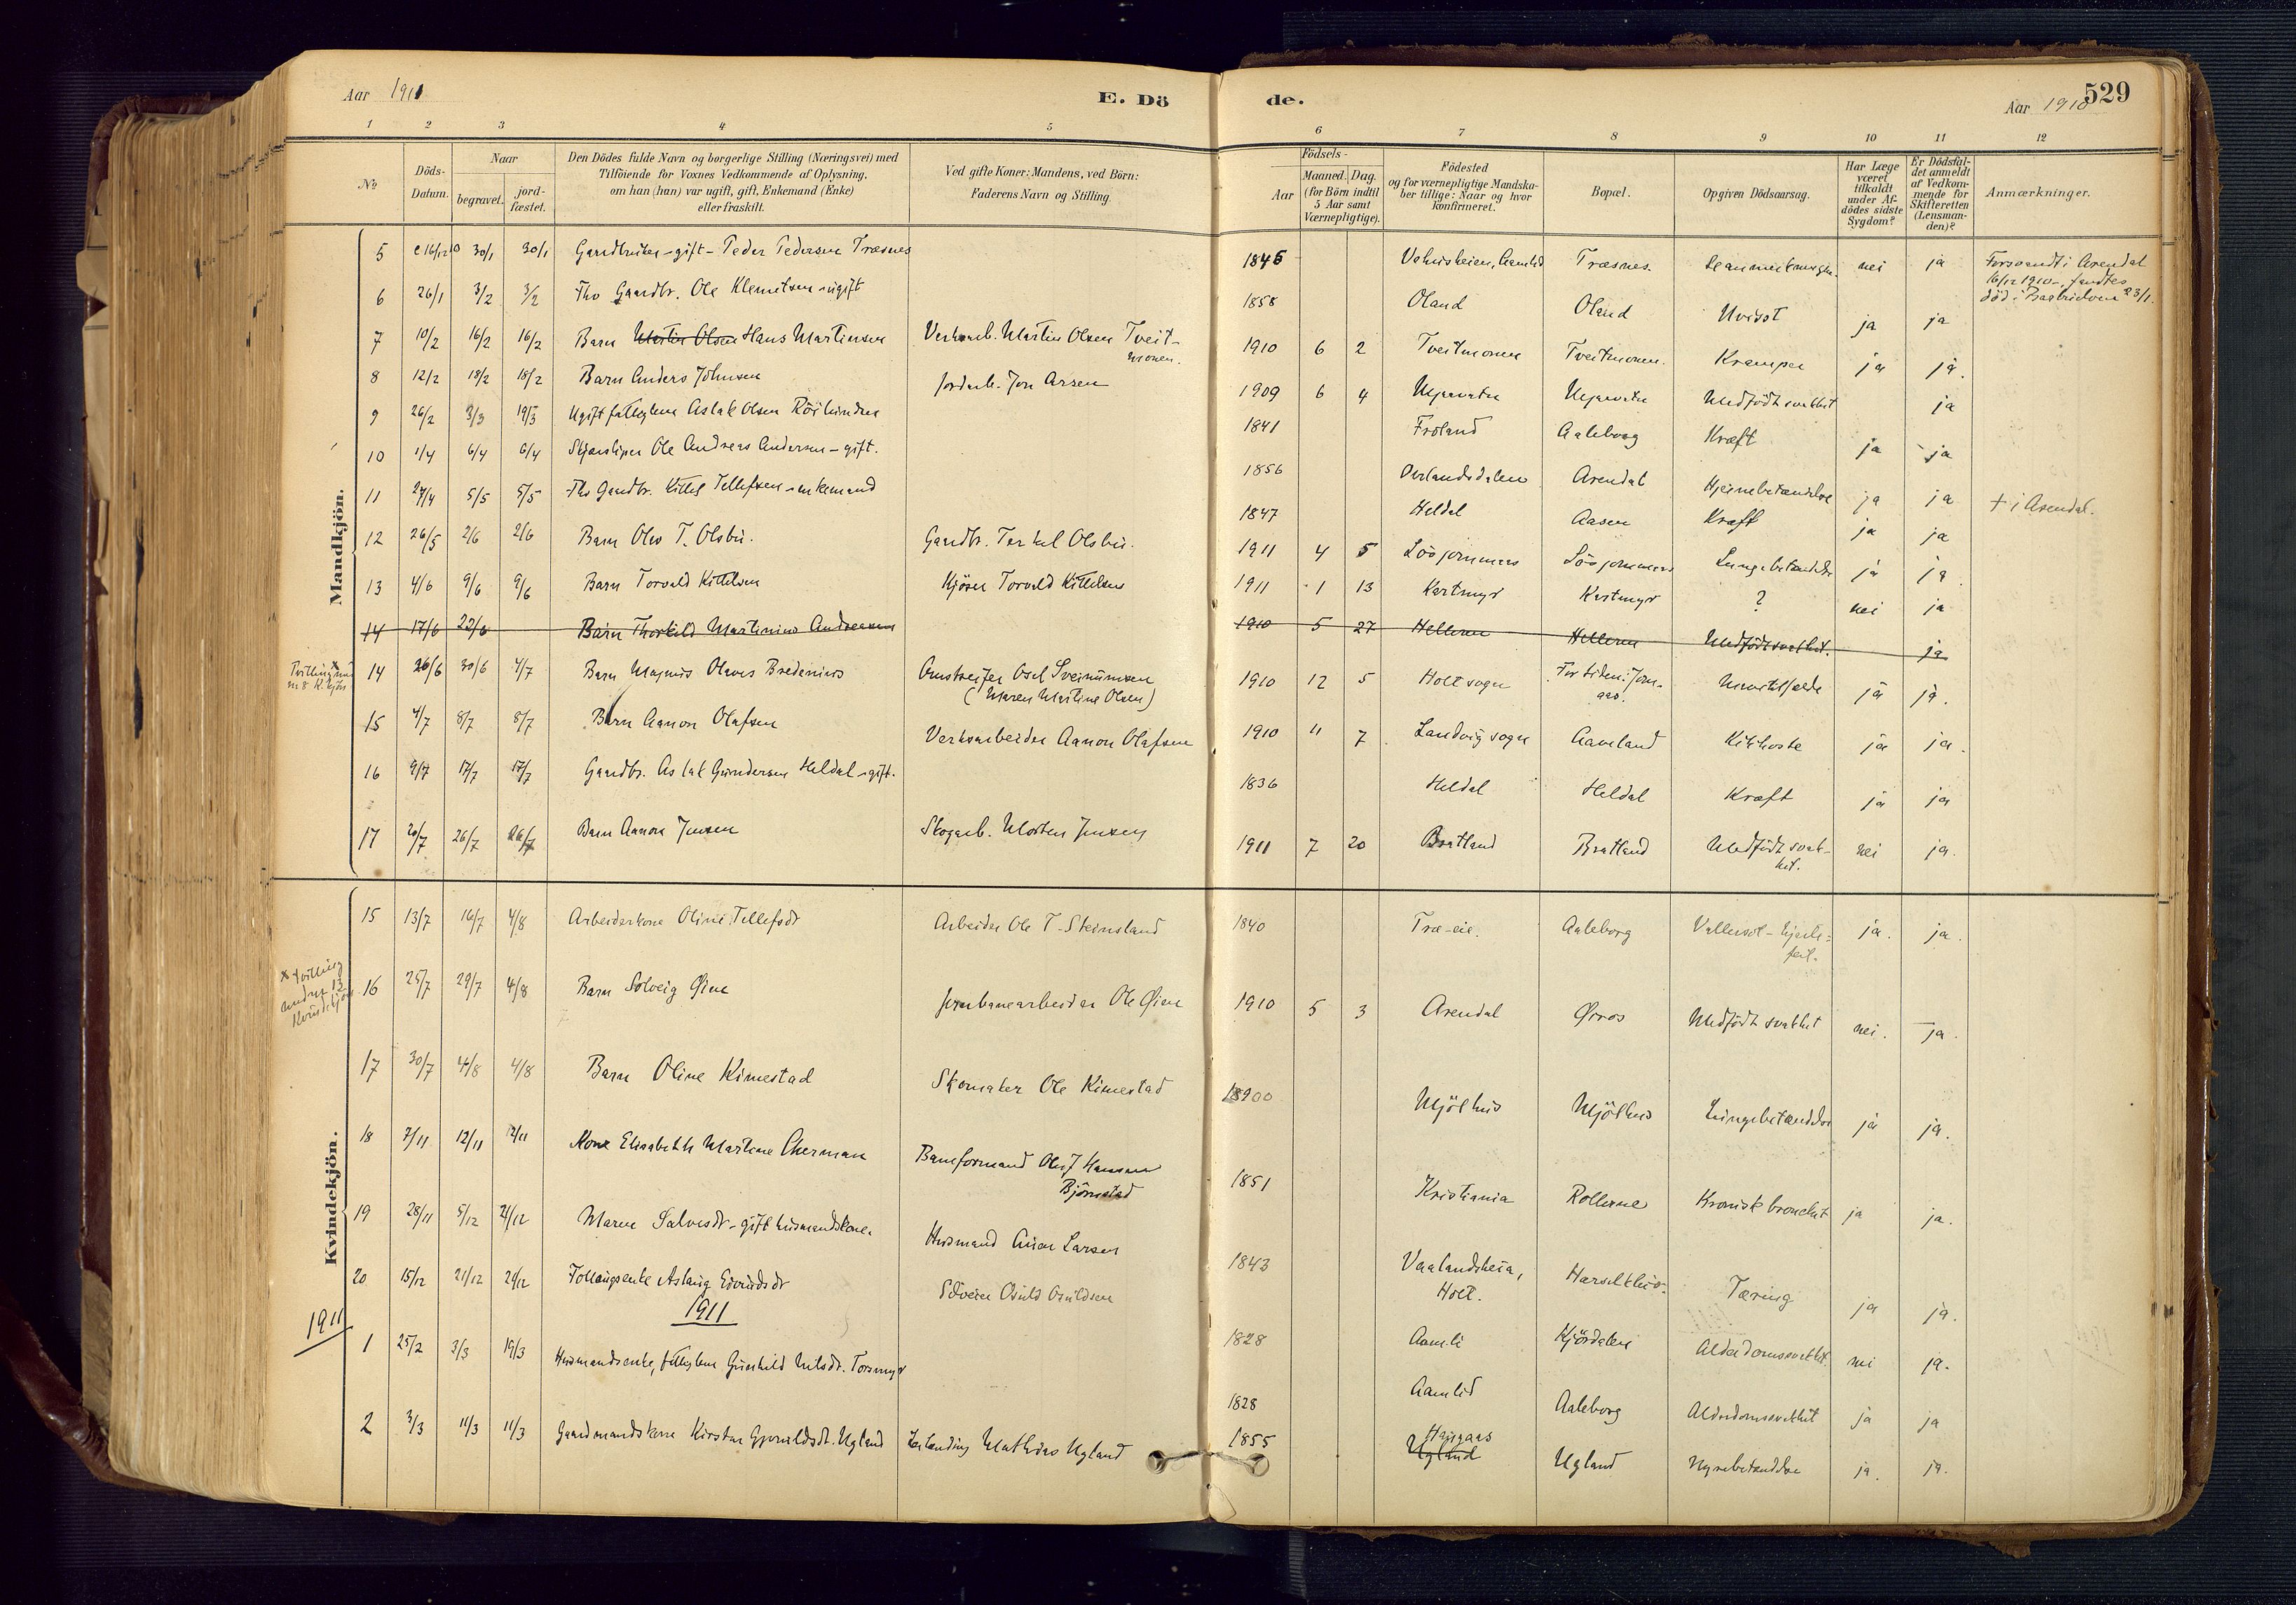 Aar 1911 E. Dö de. Aar 1910 529
1 2 3 4 5 6 7 8 9 10 11 12
No Döds-Datum. Naar begravet. jordfæstet. Den Dödes fulde Navn og borgerlige Stilling (Næringsvei) med Tilföiende for Voxnes Vedkommende af Oplysning, om han (hun) var ugift, gift, Enkemand (Enke) eller fraskilt. Ved gifte Koner: Mandens, ved Börn: Faderens Navn og Stilling. Födsels- Aar Maaned. Dag. (for Börn indtil 5 Aar samt Værnepligtige). Födested og for værnepligtige Mandskaber tillige: Naar og hvor konfirmeret. Bopæl. Opgiven Dödsaarsag. Har Læge været tilkaldt under Afdödes sidste Sygdom? Er Dödsfaldet anmeldt af Vedkommende for Skifteretten (Lensmanden)? Anmærkninger.
Mandkjön.
5 c 16/12 10 30/1 30/1 Gaardbruker - gift - Peder Pedersen Træsnes 1845 Træsnes. nei ja Forsvandt i Arendal 16/12 1910, fandtes död i 23/1.
6 26/1 3/2 3/2 Fhv Gaardbr. Ole Klemetsen - ugift 1858 Oland Oland Uvisst ja ja
7 10/2 16/2 16/2 Barn Martin Olsen Hans Martinsen Verksarb. Martin Olsen Tveitmonen. 1910 6 2 Tveitmonen Tveitmonen. Krampe ja ja.
8 12/2 18/2 18/2 Barn Anders Johnsen Jordarb. Jon Arsen 1909 6 4 Mjaavatn Mjaavatn Medfödt svakhet ja
9 26/2 3/3 19/3 Ugift fattiglem Aslak Olsen 1841 Fröland Aaleborg Kræft ja ja
10 1/4 6/4 6/4 Ole Andreas Andersen - gift. 1856 Arendal Hjernebetændelse ja ja + i Arendal.
11 27/4 5/5 5/5 Fhv Gaardbr. Kittel Tellefsen - enkemand 1847 Heldal Aasen Kræft ja ja
12 26/5 2/6 2/6 Barn Olav T. Olsbu. Gaardbr. Terkel Olsbu. 1911 4 5 Lungebetændelse ja ja.
13 4/6 9/6 9/6 Barn Torvald Kittelsen Kjörer Torvald Kittelsen 1911 1 13 Kortmyr Kortmyr ? nei ja
14 17/6 22/6 Barn Thorkild Martinius Andreasen 1910 5 27 Helleren Helleren Medfödt svakhet. ja
14 26/6 30/6 4/7 Barn Magnus Olaves Bredenius Osel Sveinumsen (Maren Martine Olsen) 1910 12 5 Holt sogn For tiden: Jomaas. ja ja.
15 4/7 8/7 8/7 Barn Aanon Olafsen Verksarbeider Aanon Olafsen 1910 11 7 Landvig sogn Aaveland Kikhoste ja ja.
16 9/7 17/7 17/7 Gaardbr. Aslak Gundersen Heldal - gift. 1836 Heldal Heldal Kræft ja ja
17 20/7 26/7 26/7 Barn Aanon Jensen Skogarb. Morten Jensen 1911 7 20 Bratland Bratland Medfödt svakhet. nei ja.
Kvindekjön.
15 13/7 16/7 4/8 Arbeiderkone Oline Tellefsdr Arbeider Ole T. Steinsland 1840 Træ-eie. Aaleborg Vattersot - hjertefeil. ja. ja.
x tvilling
16 25/7 29/7 4/8 Barn Solveig Øine Jernbanearbeider Ole Øine 1910 5 3 Arendal Medfödt svakhet nei. ja.
17 30/7 4/8 4/8 Barn Oline Kimestad Skomaker Ole Kimestad 1900 Mjölhus Mjölhus Lungebetændelse ja ja.
18 7/11 12/11 12/11 Kone Elisabeth Martine Cherman Baneformand Oluf Hansen Björnstad 1851 Kristiania Kronisk bronchit ja ja.
19 28/11 5/12 21/12 Maren Salvesdr - gift husmandskone. Husmand Larsen 1843 Vaalandsheia, Holt. Tæring ja ja.
20 15/12 21/12 21/12 Aslaug Eivindsdr Osuld Osuldsen 1828 Aamli Kjördalen Alderdomssvakhet. nei ja.
1911
1911
1 25/2 3/3 19/3 Husmandsenke, fattiglem Gunhild Nilsdr. Torsmyr 1828 Aamlid Aaleborg Alderdomssvakhet ja ja
2 3/3 11/3 11/3 Gaardmandskone Kirsten Ugland Mathias Ugland 1855 Haugaas Ugland Ugland Nyrebetændelse ja. ja.